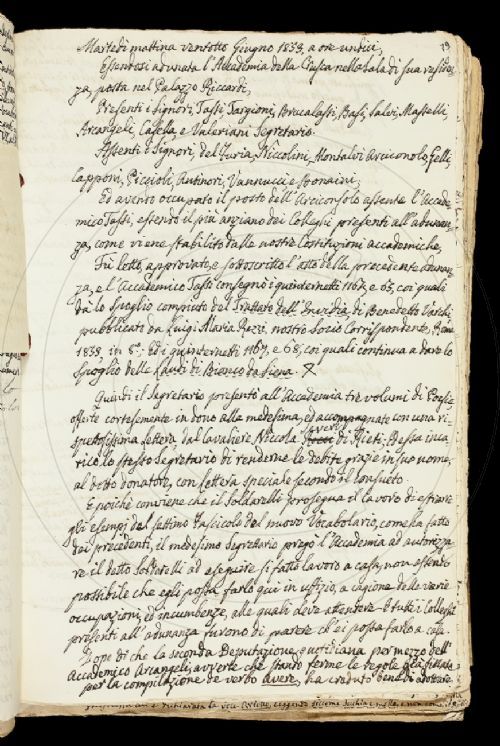 79
Martedì mattina ventotto Giugno 1853, a ore undici,
Essendosi adunata l'Accademia della Crusca nella Sala di sua residen-
za, posta nel Palazzo Riccardi,
Presenti i Signori, Tassi, Targioni, Brucalassi, Basi, Salvi, Masselli,
Arcangeli, Casella, e Valeriani Segretario.
Assenti i Signori, Del Furia, Niccolini, Montalvi Arciconsolo, Gelli,
Capponi, Puccioli, Antinori, Vannucci e Bonaini,
Ed avendo occupato il posto dell'Arciconsolo assente l'Accade-
mico Tassi, essendo il più anziano dei Colleghi presenti all'adunan-
za, come viene stabilito dalle nostre Costituzioni accademiche,
Fu letto, approvato, e sottoscritto l'atto della precedente adunan-
za, e l'Accademico Tassi consegnò i quinternetti 1164, e 65, coi quali
dà lo spoglio compiuto del Trattato dell'Invidia di Benedetto Varchi
pubblicati da Luigi Maria Rezzi, nostro Socio Corrispondente,
1853 in 8.º; Ed i quinternetti 1167, e 68, coi quali continua a dare lo
Spoglio delle Laudi di Bianco da Siena. X
Quindi il Segretario presentò all'Accademia tre volumi di Poesie,
offerte cortesemente in dono alla medesima, ed accompagnate con una ri-
spettosissima lettera dal Cavaliere Niccola di Rieti: Ed essa inca-
ricò lo stesso Segretario di renderne le debite grazie in suo nome
al detto donatore, con lettera speciale secondo il consueto.
E poiché conviene che il Soldarelli prosegua il lavoro di estrarre
gli esempi dal settimo Fascicolo del nuovo Vocabolario, come ha fatto
dai precedenti, il medesimo Segretario pregò l'Accademia ad autorizza-
re il detto Soldarelli ad eseguire sì fatto lavoro a casa, non essendo
possibile che egli possa farlo qui in uffizio, a cagione delle varie
occupazioni, ed incumbenze, alle quali deve attendere. E tutti i Colleghi
presenti all'adunanza furono di parere ch'ei possa farlo a casa.
Dopo di che la seconda Deputazione quotidiana per mezzo dell'
Accademico Arcangeli avverte che stando ferme le regole già fissate
per la compilazione del verbo Avere, ha creduto bene di adottare